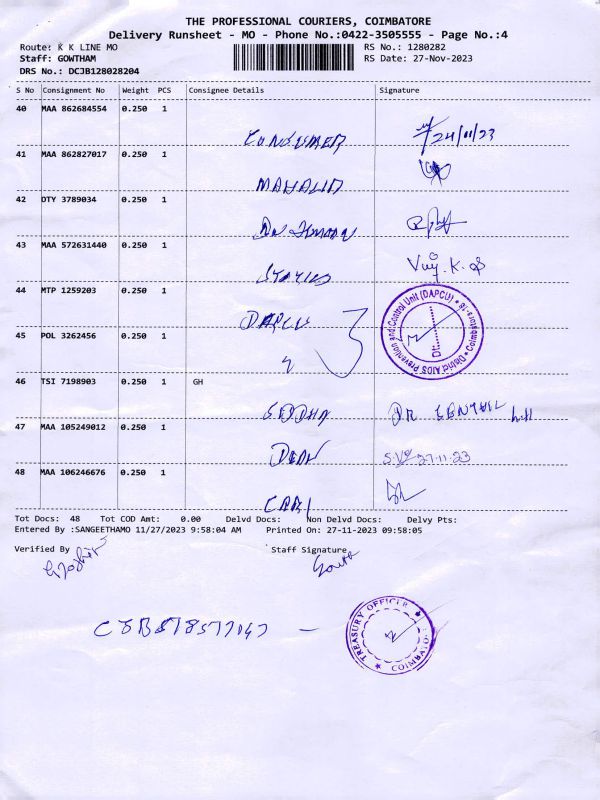 THE PROFESSIONAL COURIERS, COIMBATORE
Delivery Runsheet - MO - Phone No.:0422-3505555 - Page No.:4
Route: K K LINE MO
RS No.: 1280282
Staff: GOWTHAM
RS Date: 27-Nov-2023
DRS No.: DCJB128028204
S No Consignment No Weight PCS Consignee Details Signature
40 MAA 862684554 0.250 1
CONSUMER 24/11/23
41 MAA 862827017 0.250 1
42 DTY 3789034 0.250 1
43 MAA 572631440 0.250 1
Vijy.K.S
44 MTP 1259203 0.250 1
DAPCU
District AIDS Prevention and Control Unit (DAPCU) • Coimbatore-18 •
45 POL 3262456 0.250 1
46 TSI 7198903 0.250 1 GH
SIDDHA DR SENTHIL
47 MAA 105249012 0.250 1
DEAN 27.11.23
48 MAA 106246676 0.250 1
Tot Docs: 48 Tot COD Amt: 0.00 Delvd Docs: Non Delvd Docs: Delvy Pts:
Entered By :SANGEETHAMO 11/27/2023 9:58:04 AM Printed On: 27-11-2023 09:58:05
Verified By
Staff Signature
TREASURY OFFICER ★ COIMBATORE ★